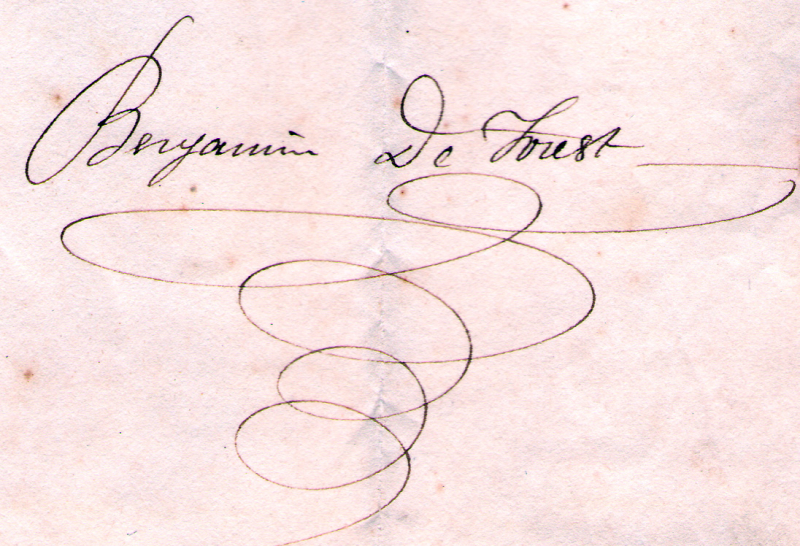 Benjamin De Forest